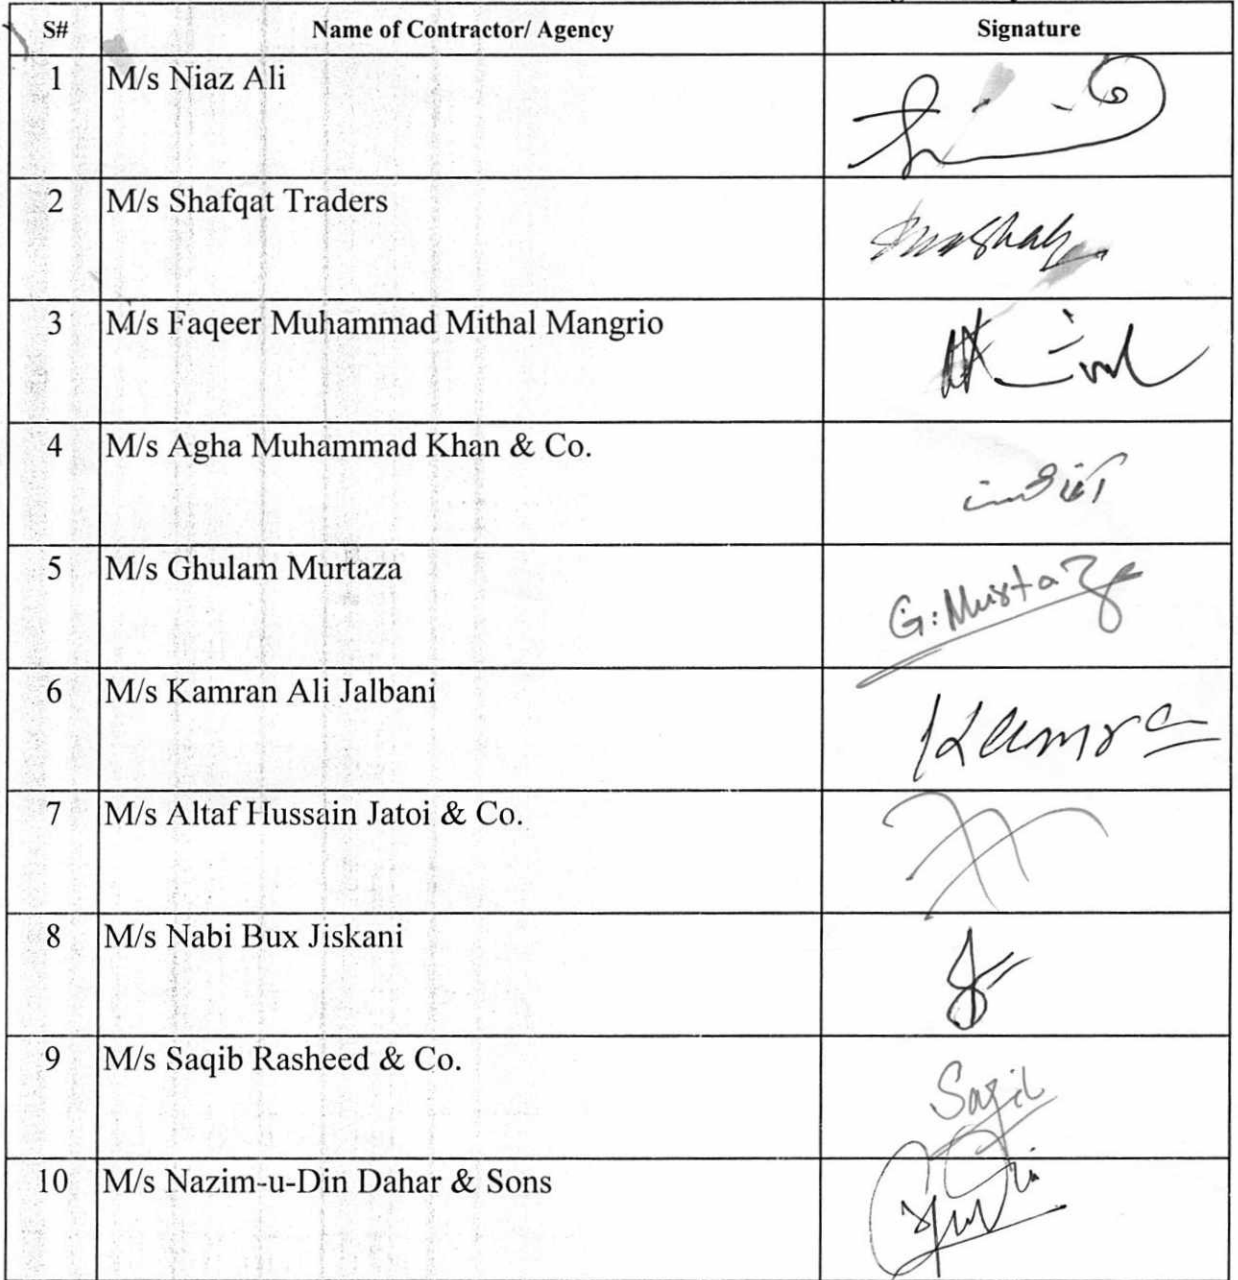 S# Name of Contractor/ Agency Signature
1 M/s Niaz Ali
2 M/s Shafqat Traders
3 M/s Faqeer Muhammad Mithal Mangrio
4 M/s Agha Muhammad Khan & Co.
5 M/s Ghulam Murtaza G. Murtaza
6 M/s Kamran Ali Jalbani Kamran
7 M/s Altaf Hussain Jatoi & Co.
8 M/s Nabi Bux Jiskani
9 M/s Saqib Rasheed & Co. Saqib
10 M/s Nazim-u-Din Dahar & Sons